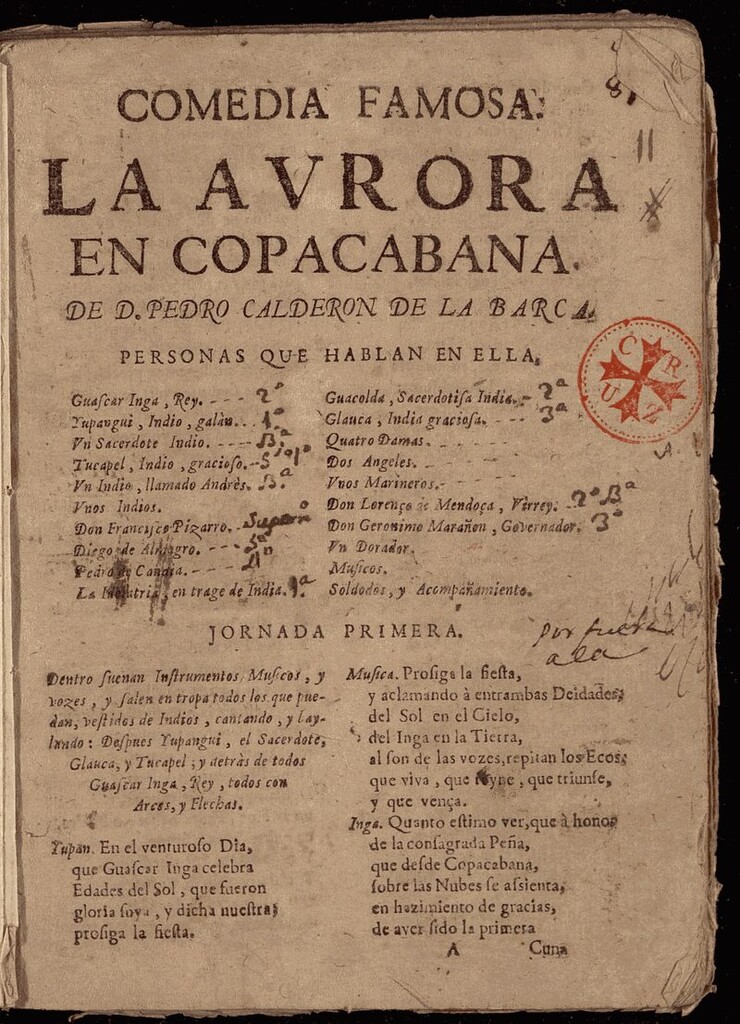 COMEDIA FAMOSA.
LA AVRORA
EN COPACABANA.
DE D. PEDRO CALDERON DE LA BARCA.
PERSONAS QUE HABLAN EN ELLA.
Guaſcar Inga, Rey. - - - 2º
Yupangui, Indio, galàn. . . 1º
Vn Sacerdote Indio. - - - - Bª
Tucapel, Indio, gracioſo. -
Vn Indio, llamado Andrès. Bª
Vnos Indios.
Don Franciſco Pizarro.
Diego de Almagro. - - -
Pedro de Candia. - - - -
La Idolatria, en trage de India. 1ª
Guacolda, Sacerdotiſa India. - 2ª
Glauca, India gracioſa. - - - 3ª
Quatro Damas.
Dos Angeles.
Vnos Marineros.
Don Lorenço de Mendoça, Virrey. 2º Bª
Don Geronimo Marañon, Governador. 3º
Vn Dorador.
Muſicos.
Soldados, y Acompañamiento.
CRUZ
11
JORNADA PRIMERA.
por fuera
Dentro ſuenan Inſtrumentos Muſicos, y
vozes, y ſalen en tropa todos los que pue-
dan, veſtidos de Indios, cantando, y bay-
lando: Deſpues Yupangui, el Sacerdote,
Glauca, y Tucapel; y detràs de todos
Guaſcar Inga, Rey, todos con
Arcos, y Flechas.
Yupan. En el venturoſo Dia,
que Guaſcar Inga celebra
Edades del Sol, que fueron
gloria ſuya, y dicha nueſtra;
proſiga la fieſta.
Muſica. Proſiga la fieſta,
y aclamando à entrambas Deidades;
del Sol en el Cielo,
del Inga en la Tierra,
al ſon de las vozes, repitan los Ecos;
que viva, que Reyne, que triunfe,
y que vença.
Inga. Quanto eſtimo ver, que à honor
de la conſagrada Peña,
que deſde Copacabana,
ſobre las Nubes ſe aſsienta,
en hazimiento de gracias,
de aver ſido la primera
A Cuna